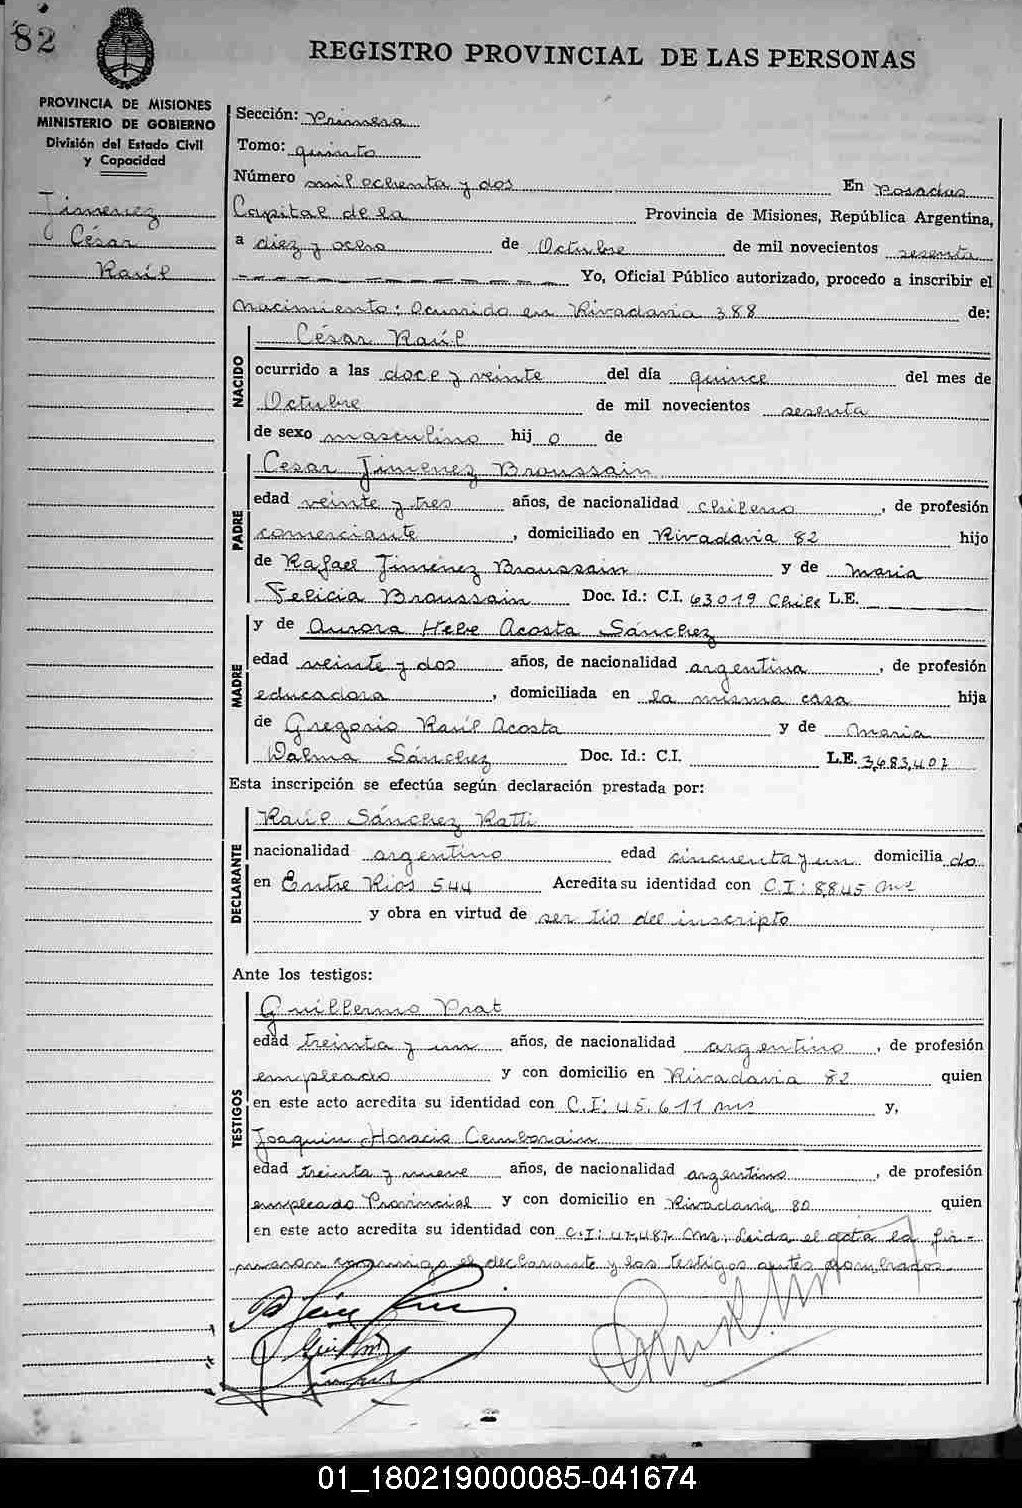 82
REGISTRO PROVINCIAL DE LAS PERSONAS
PROVINCIA DE MISIONES
MINISTERIO DE GOBIERNO
División del Estado Civil
y Capacidad
Jimenez
César
Raúl
Sección: Primera
Tomo: quinto
Número mil ochenta y dos En Posadas
Capital de la Provincia de Misiones, República Argentina,
a diez y ocho de Octubre de mil novecientos sesenta
Yo, Oficial Público autorizado, procedo a inscribir el
nacimiento: Ocurrido en Rivadavia 388 de:
NACIDO
César Raúl
ocurrido a las doce y veinte del día quince del mes de
Octubre de mil novecientos sesenta
de sexo masculino hij o de
PADRE
Cesar Jimenez Broussain
edad veinte y tres años, de nacionalidad chileno, de profesión
comerciante, domiciliado en Rivadavia 82 hijo
de Rafael Jimenez Broussain y de Maria
Felicia Broussain Doc. Id.: C.I. 63019 Chile L.E.
MADRE
y de Aurora Hebe Acosta Sánchez
edad veinte y dos años, de nacionalidad argentina, de profesión
educadora, domiciliada en la misma casa hija
de Gregorio Raúl Acosta y de Maria
Walma Sánchez Doc. Id.: C.I. L.E. 3,683,402
Esta inscripción se efectúa según declaración prestada por:
DECLARANTE
Raúl Sánchez Ratti
nacionalidad argentino edad cincuenta y un domicilia do
en Entre Rios 544 Acredita su identidad con C.I: 8845 Mns
y obra en virtud de ser tio del inscripto
Ante los testigos:
TESTIGOS
Guillermo Prat
edad treinta y un años, de nacionalidad argentino, de profesión
empleado y con domicilio en Rivadavia 82 quien
en este acto acredita su identidad con C.I: 45.611 Mns y,
Joaquin Horacio Cemborain
edad treinta y nueve años, de nacionalidad argentino, de profesión
empleado Provincial y con domicilio en Rivadavia 80 quien
en este acto acredita su identidad con C.I: 47.487 Mns. Leida el acta la fir-
maron conmigo el declarante y los testigos antes nombrados.
01_180219000085-041674